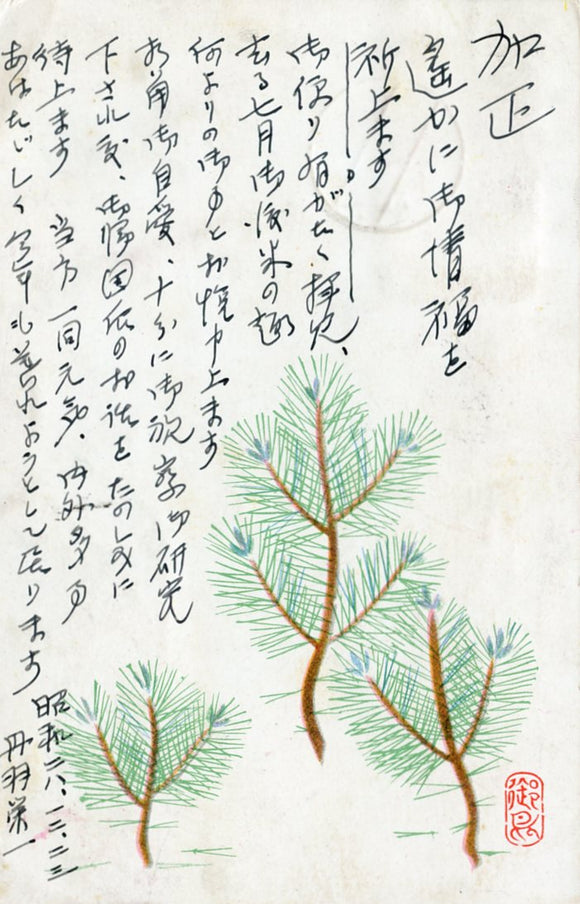 加正
遥かに御情福を
祈上ます
御便り有がたく拝见、
去る七月御渡米の趣
何よりの御事とお悦申上ます
折角御自愛、十分に御視察御研究
下され度、御帰国后のお話をたのしみに
待上ます 当方一同元気、内外多事
あはたゞしく今年も暮れようとして居ります
昭和二八、一二、二三
丹羽栄一